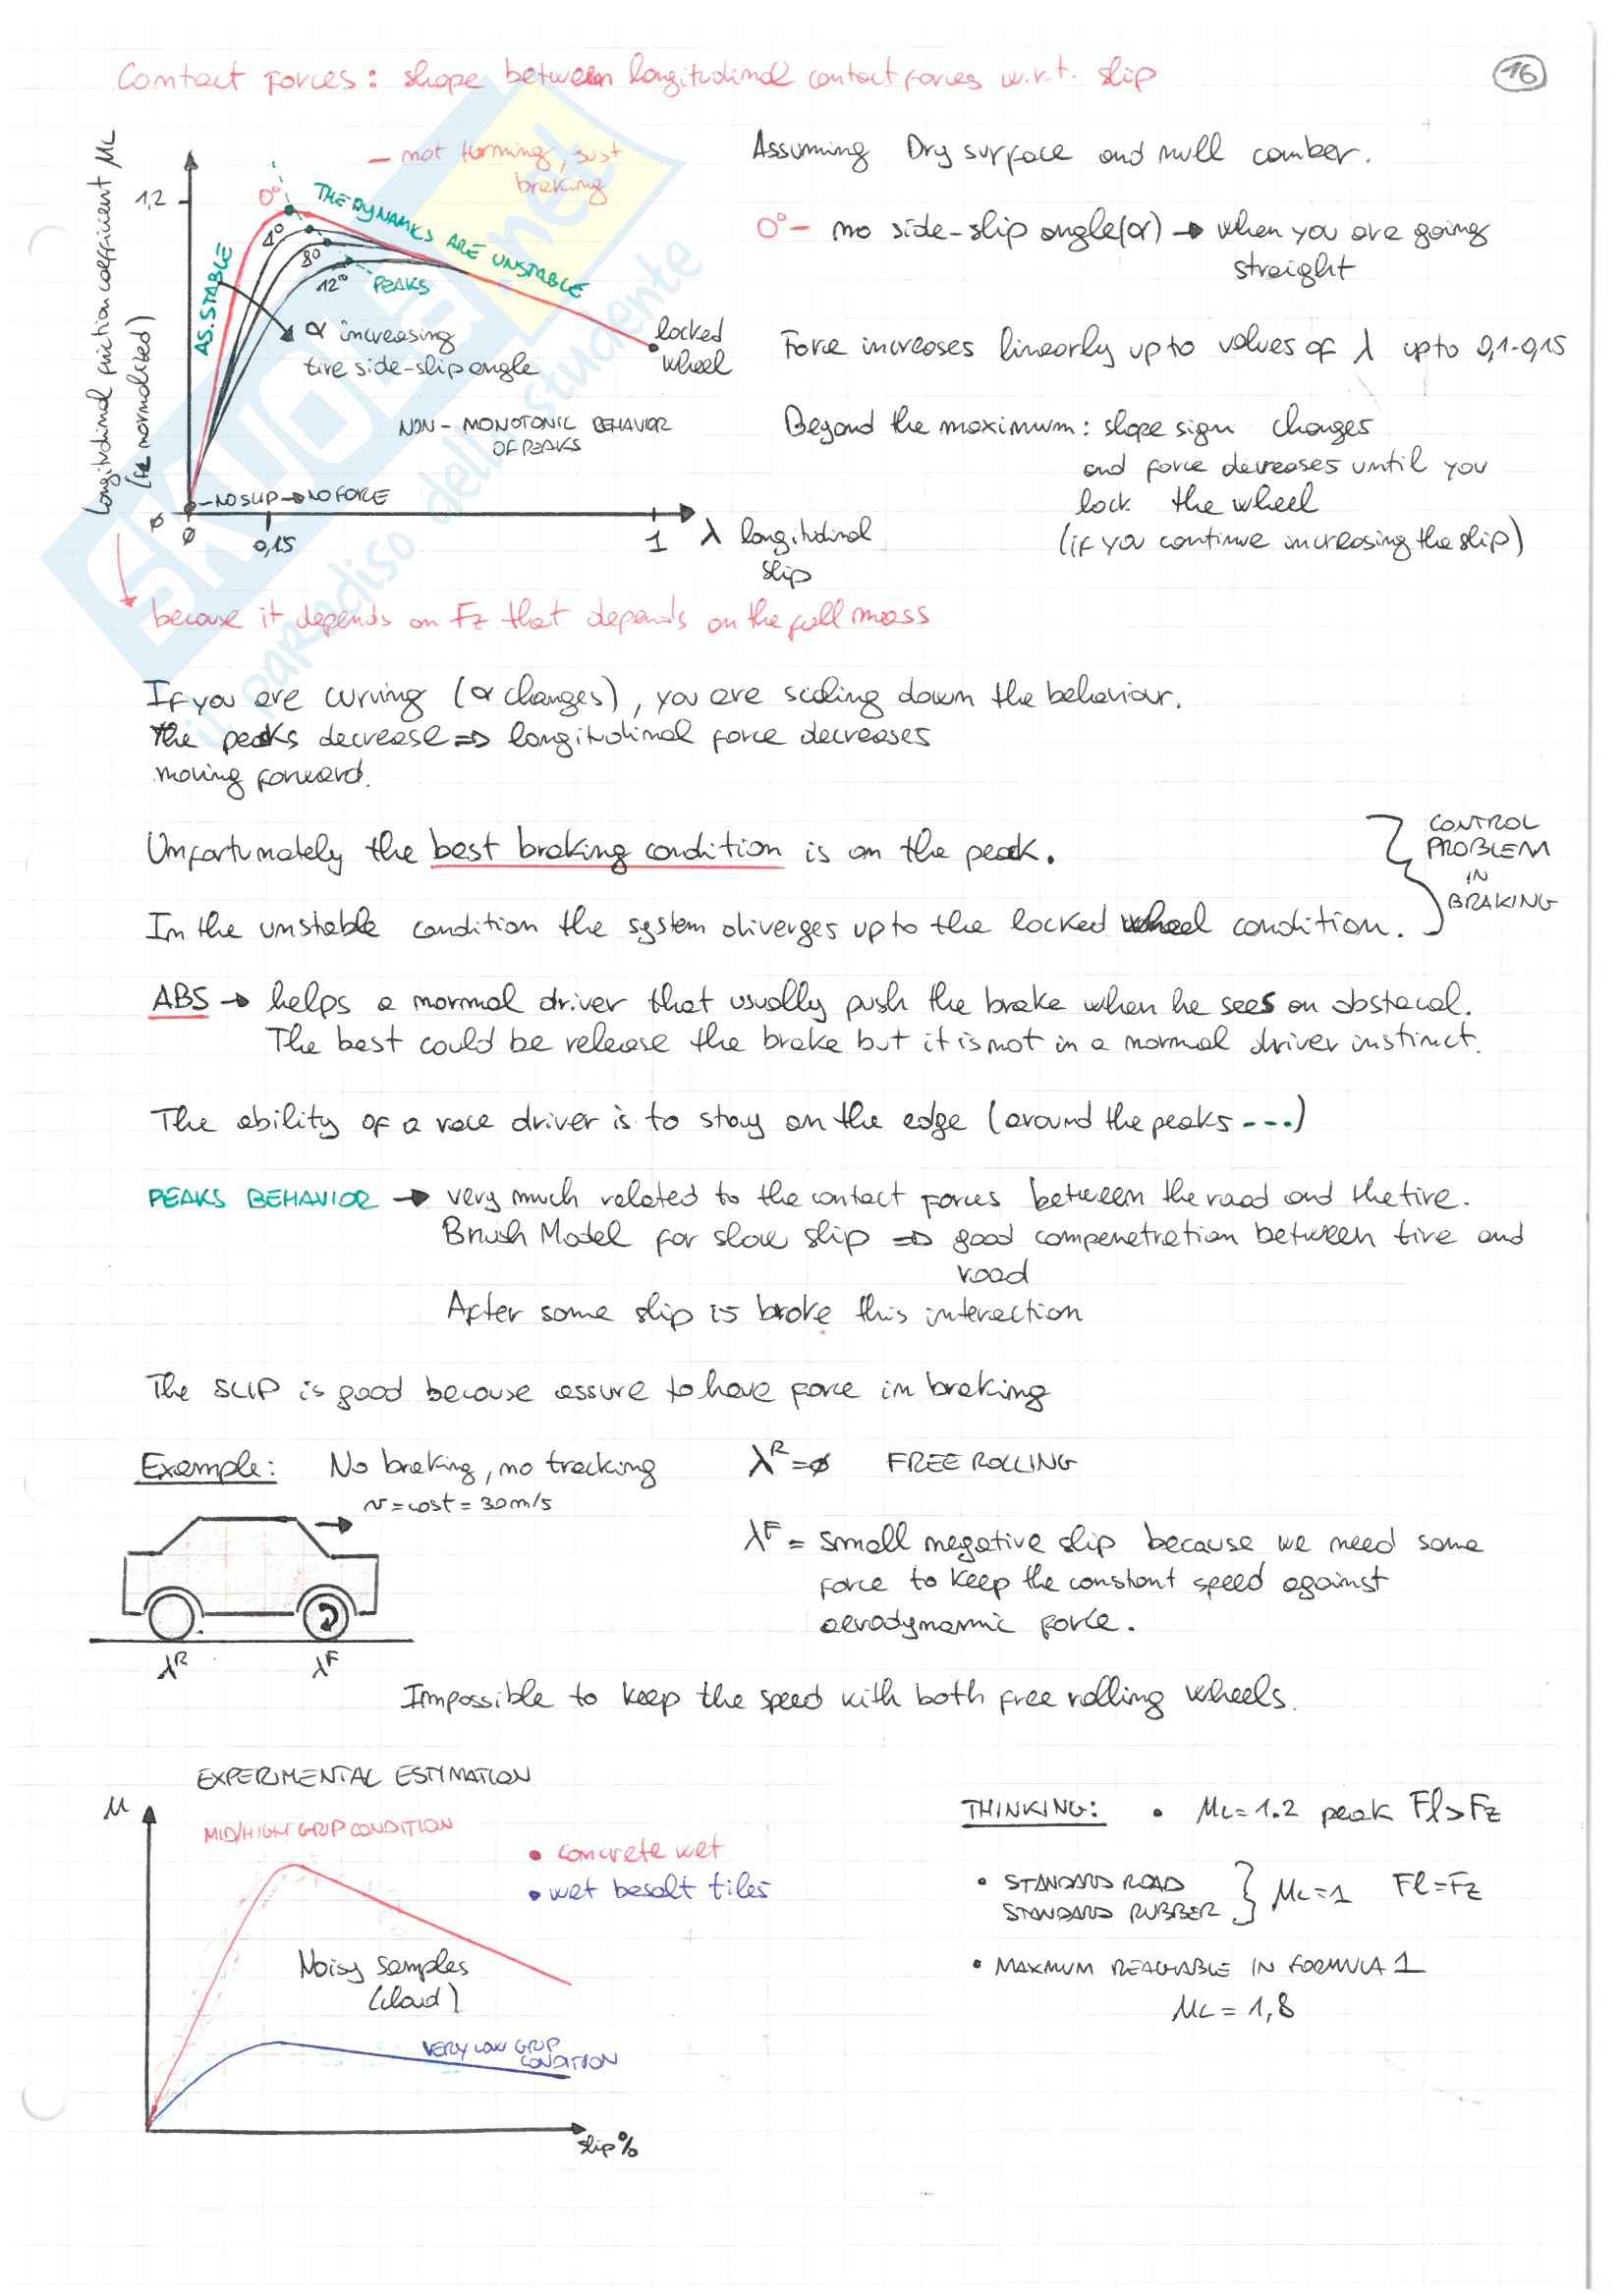 Contact Forces: shape between longitudinal contact forces w.r.t. slip
16
Longitudinal friction coefficient μL
(Fz normalized)
1,2
0°
4°
8°
12°
- not turning, just
braking
AS. STABLE
THE DYNAMICS ARE UNSTABLE
PEAKS
α increasing
tire side-slip angle
locked
wheel
NON-MONOTONIC BEHAVIOR
OF PEAKS
- NO SLIP → NO FORCE
0
0
0,15
1
λ longitudinal
slip
Assuming Dry surface and null camber.
0° - no side-slip angle (α) → when you are going
straight
Force increases linearly up to values of λ up to 0,1-0,15
Beyond the maximum: slope sign changes
and force decreases until you
lock the wheel
(if you continue increasing the slip)
because it depends on Fz that depends on the full mass
If you are curving (α changes), you are scaling down the behaviour.
the peaks decrease ⇒ longitudinal force decreases
moving forward.
Unfortunately the best braking condition is on the peak.
In the unstable condition the system diverges up to the locked wheel condition.
CONTROL
PROBLEM
IN
BRAKING
ABS → helps a normal driver that usually push the brake when he sees an obstacol.
The best could be release the brake but it is not in a normal driver instinct.
The ability of a race driver is to stay on the edge (around the peaks ---)
PEAKS BEHAVIOR → very much related to the contact forces between the road and the tire.
Brush Model for slow slip ⇒ good compenetration between tire and
road
After some slip is broke this interection
The SLIP is good because assure to have force in braking
Example: No braking, no tracking
v = cost = 30 m/s
λR = 0 FREE ROLLING
λF = small negative slip because we need some
force to keep the constant speed against
aerodynamic force.
λR
λF
Impossible to keep the speed with both free rolling wheels.
EXPERIMENTAL ESTIMATION
μ
MID/HIGH GRIP CONDITION
• concrete wet
• wet basalt tiles
Noisy samples
(cloud)
VERY LOW GRIP
CONDITION
slip %
THINKING: • μL = 1.2 peak Fl > Fz
• STANDARD ROAD
STANDARD RUBBER } μL = 1 Fl = Fz
• MAXMUM REACHABLE IN FORMULA 1
μL = 1,8
SKUOLA.net
il paradiso dello studente